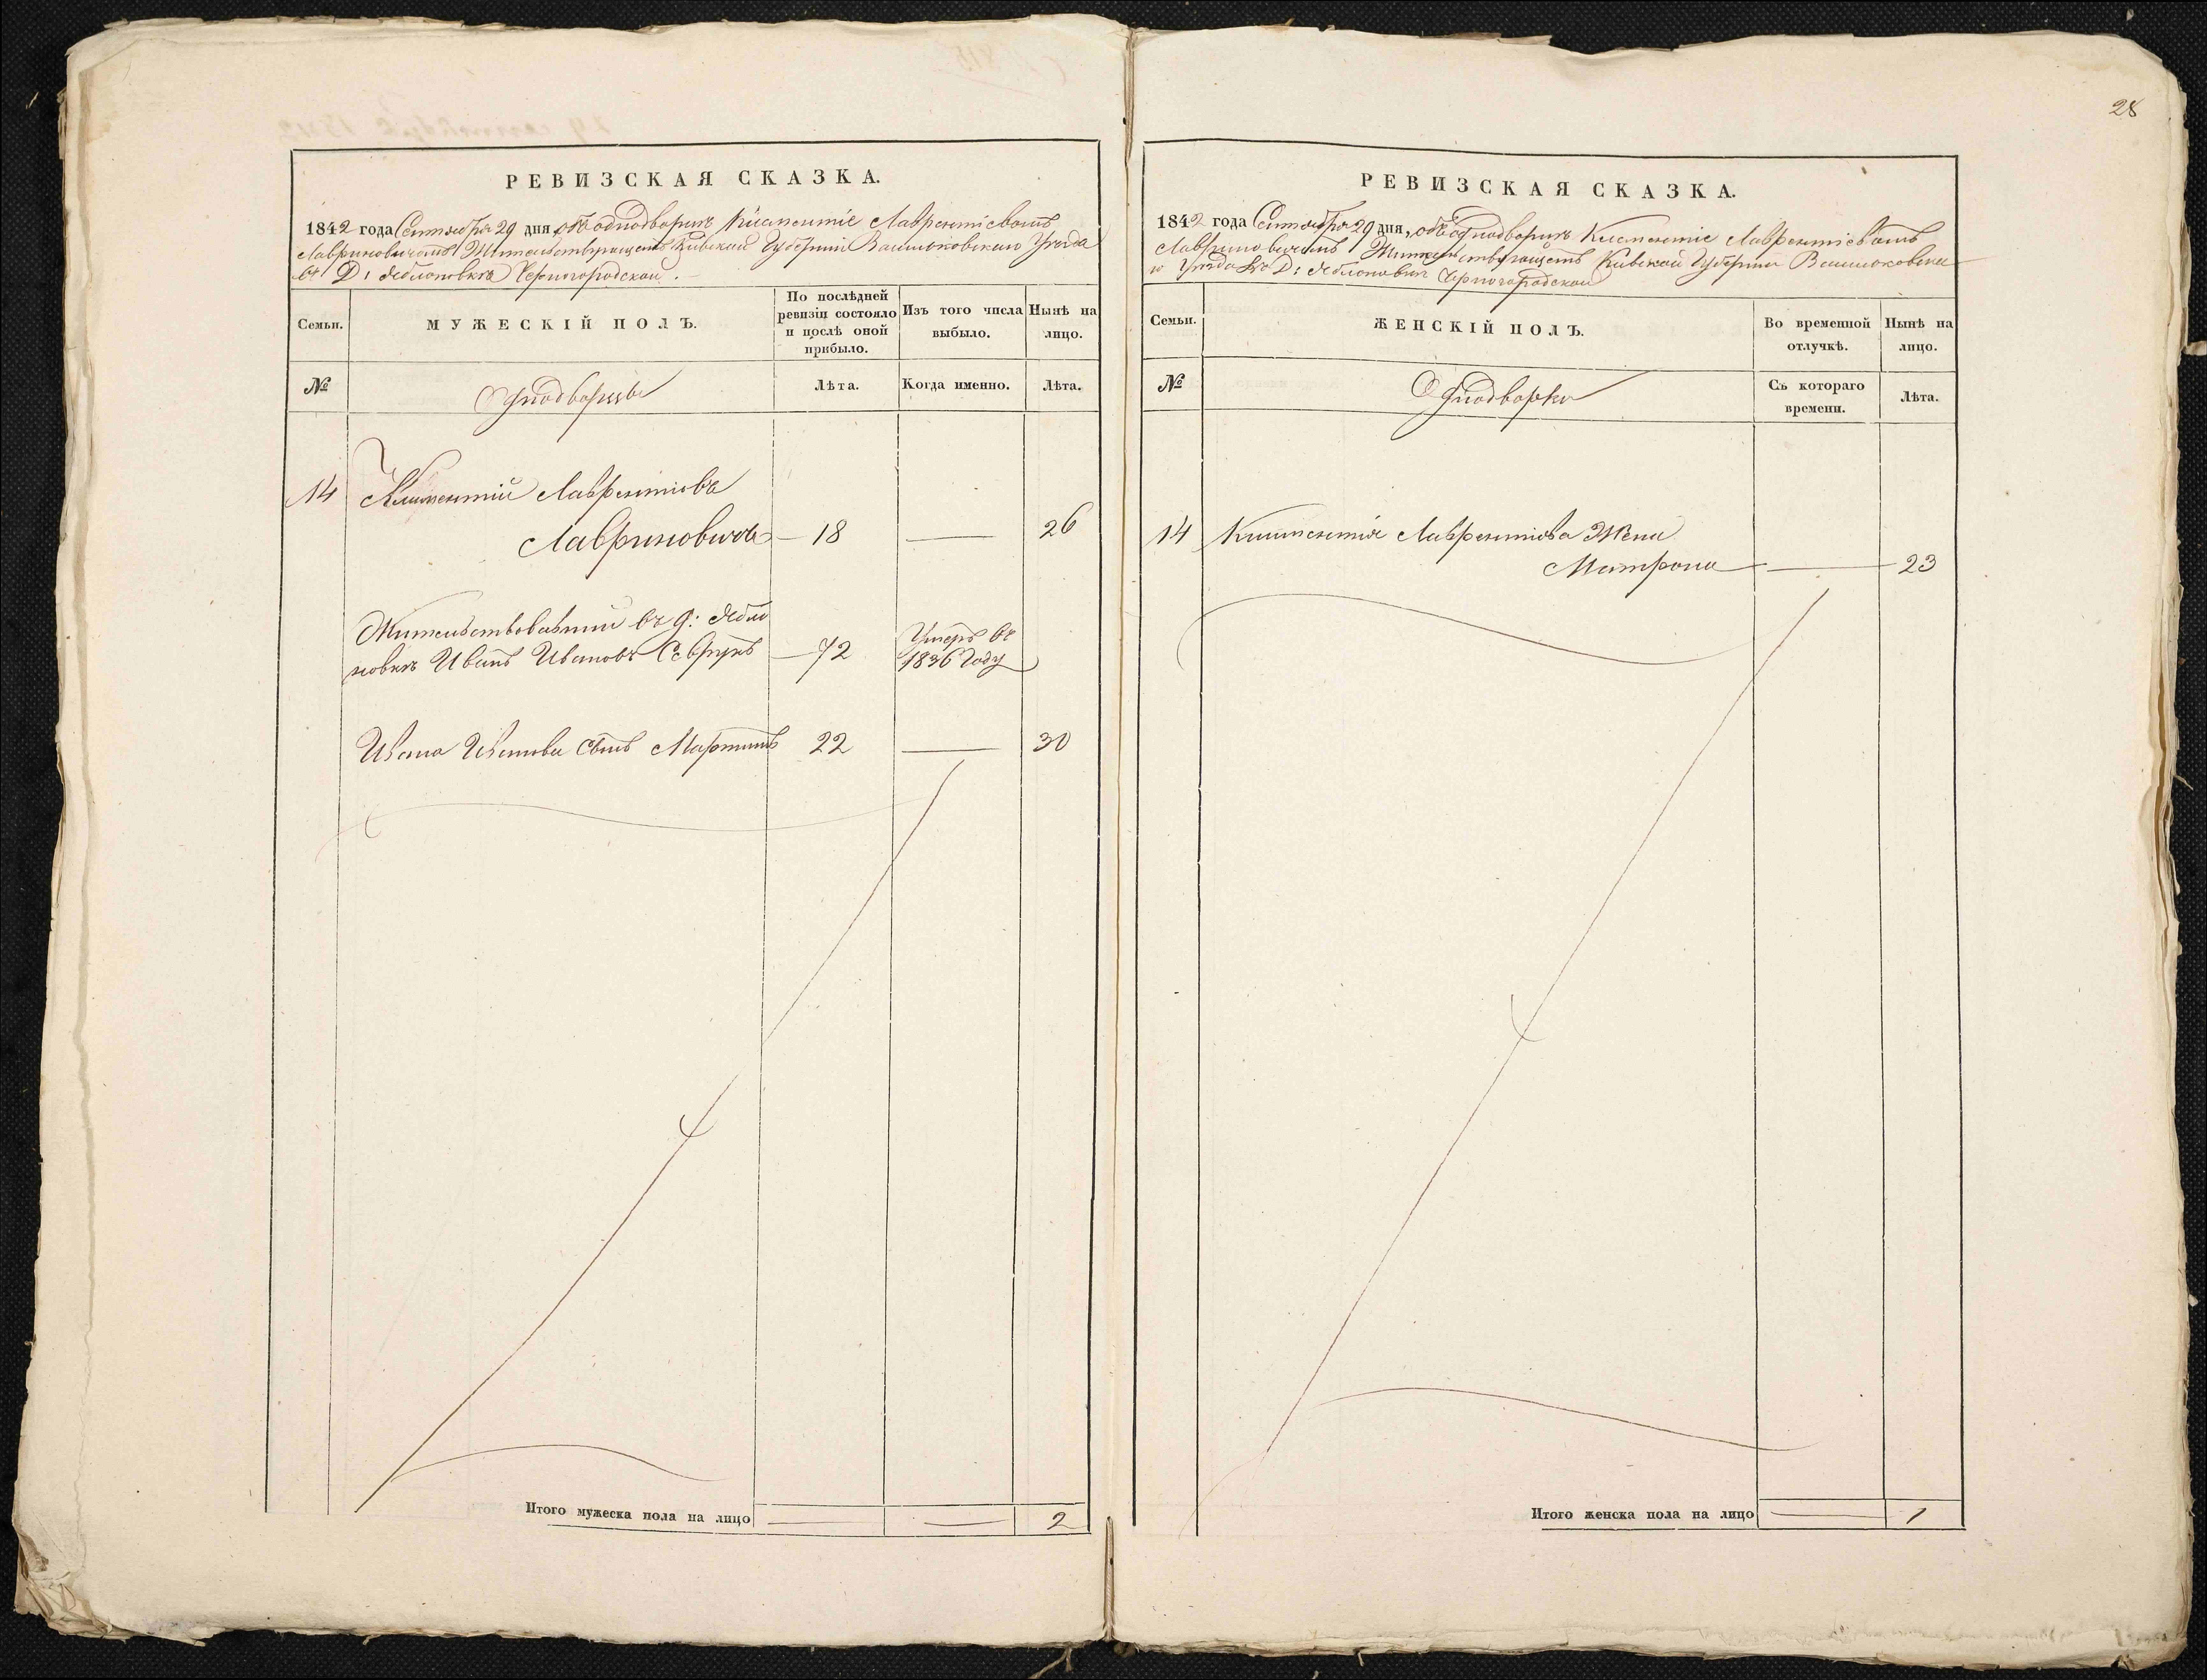 28
РЕВИЗСКАЯ СКАЗКА.
1842 года Сентября 29 дня, объ однодворцѣ Климентіе Лаврентіевомъ
Лавриновичомъ Жительствующемъ Кіевской Губерніи Васильковскаго Уѣзда
въ Д: Яблоновкѣ Черногородской.
Семьи.
МУЖЕСКІЙ ПОЛЪ.
По послѣдней
ревизіи состояло
и послѣ оной
прибыло.
Изъ того числа
выбыло.
Нынѣ на
лицо.
№
Однодворцы
Лѣта.
Когда именно.
Лѣта.
14 Климентій Лаврентіовъ
Лавриновичъ — 18 — 26
Жительствовавшій въ д: Ябло
новкѣ Иванъ Ивановъ — 72 Умеръ въ
1836 Году
Ивана Иванова Сынъ Мартинъ 22 — 30
Итого мужеска пола на лицо 2
РЕВИЗСКАЯ СКАЗКА.
1842 года Сентября 29 дня, объ Однодворцѣ Климентіе Лаврентіевомъ
Лавриновичомъ Жительствующемъ Кіевской Губерніи Васильковска
го Уѣзда въ Д: Яблоновкѣ Черногородской
Семьи.
ЖЕНСКІЙ ПОЛЪ.
Во временной
отлучкѣ.
Нынѣ на
лицо.
№
Однодворки
Съ котораго
времени.
Лѣта.
14 Климентія Лаврентіова Жена
Матрона — 23
Итого женска пола на лицо 1